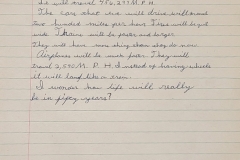 It will travel 450,257 M.P.H.
The car that we will drive will travel
two hundred miles per hour. Tires will be just
wide. Trains will be faster and larger.
They will have more shiny than they do now.
Airplanes will be much faster. They will
travel 2,050 M.P.H. Instead of having wheels
it will land like a
I wonder how life will really
be in fifty years?